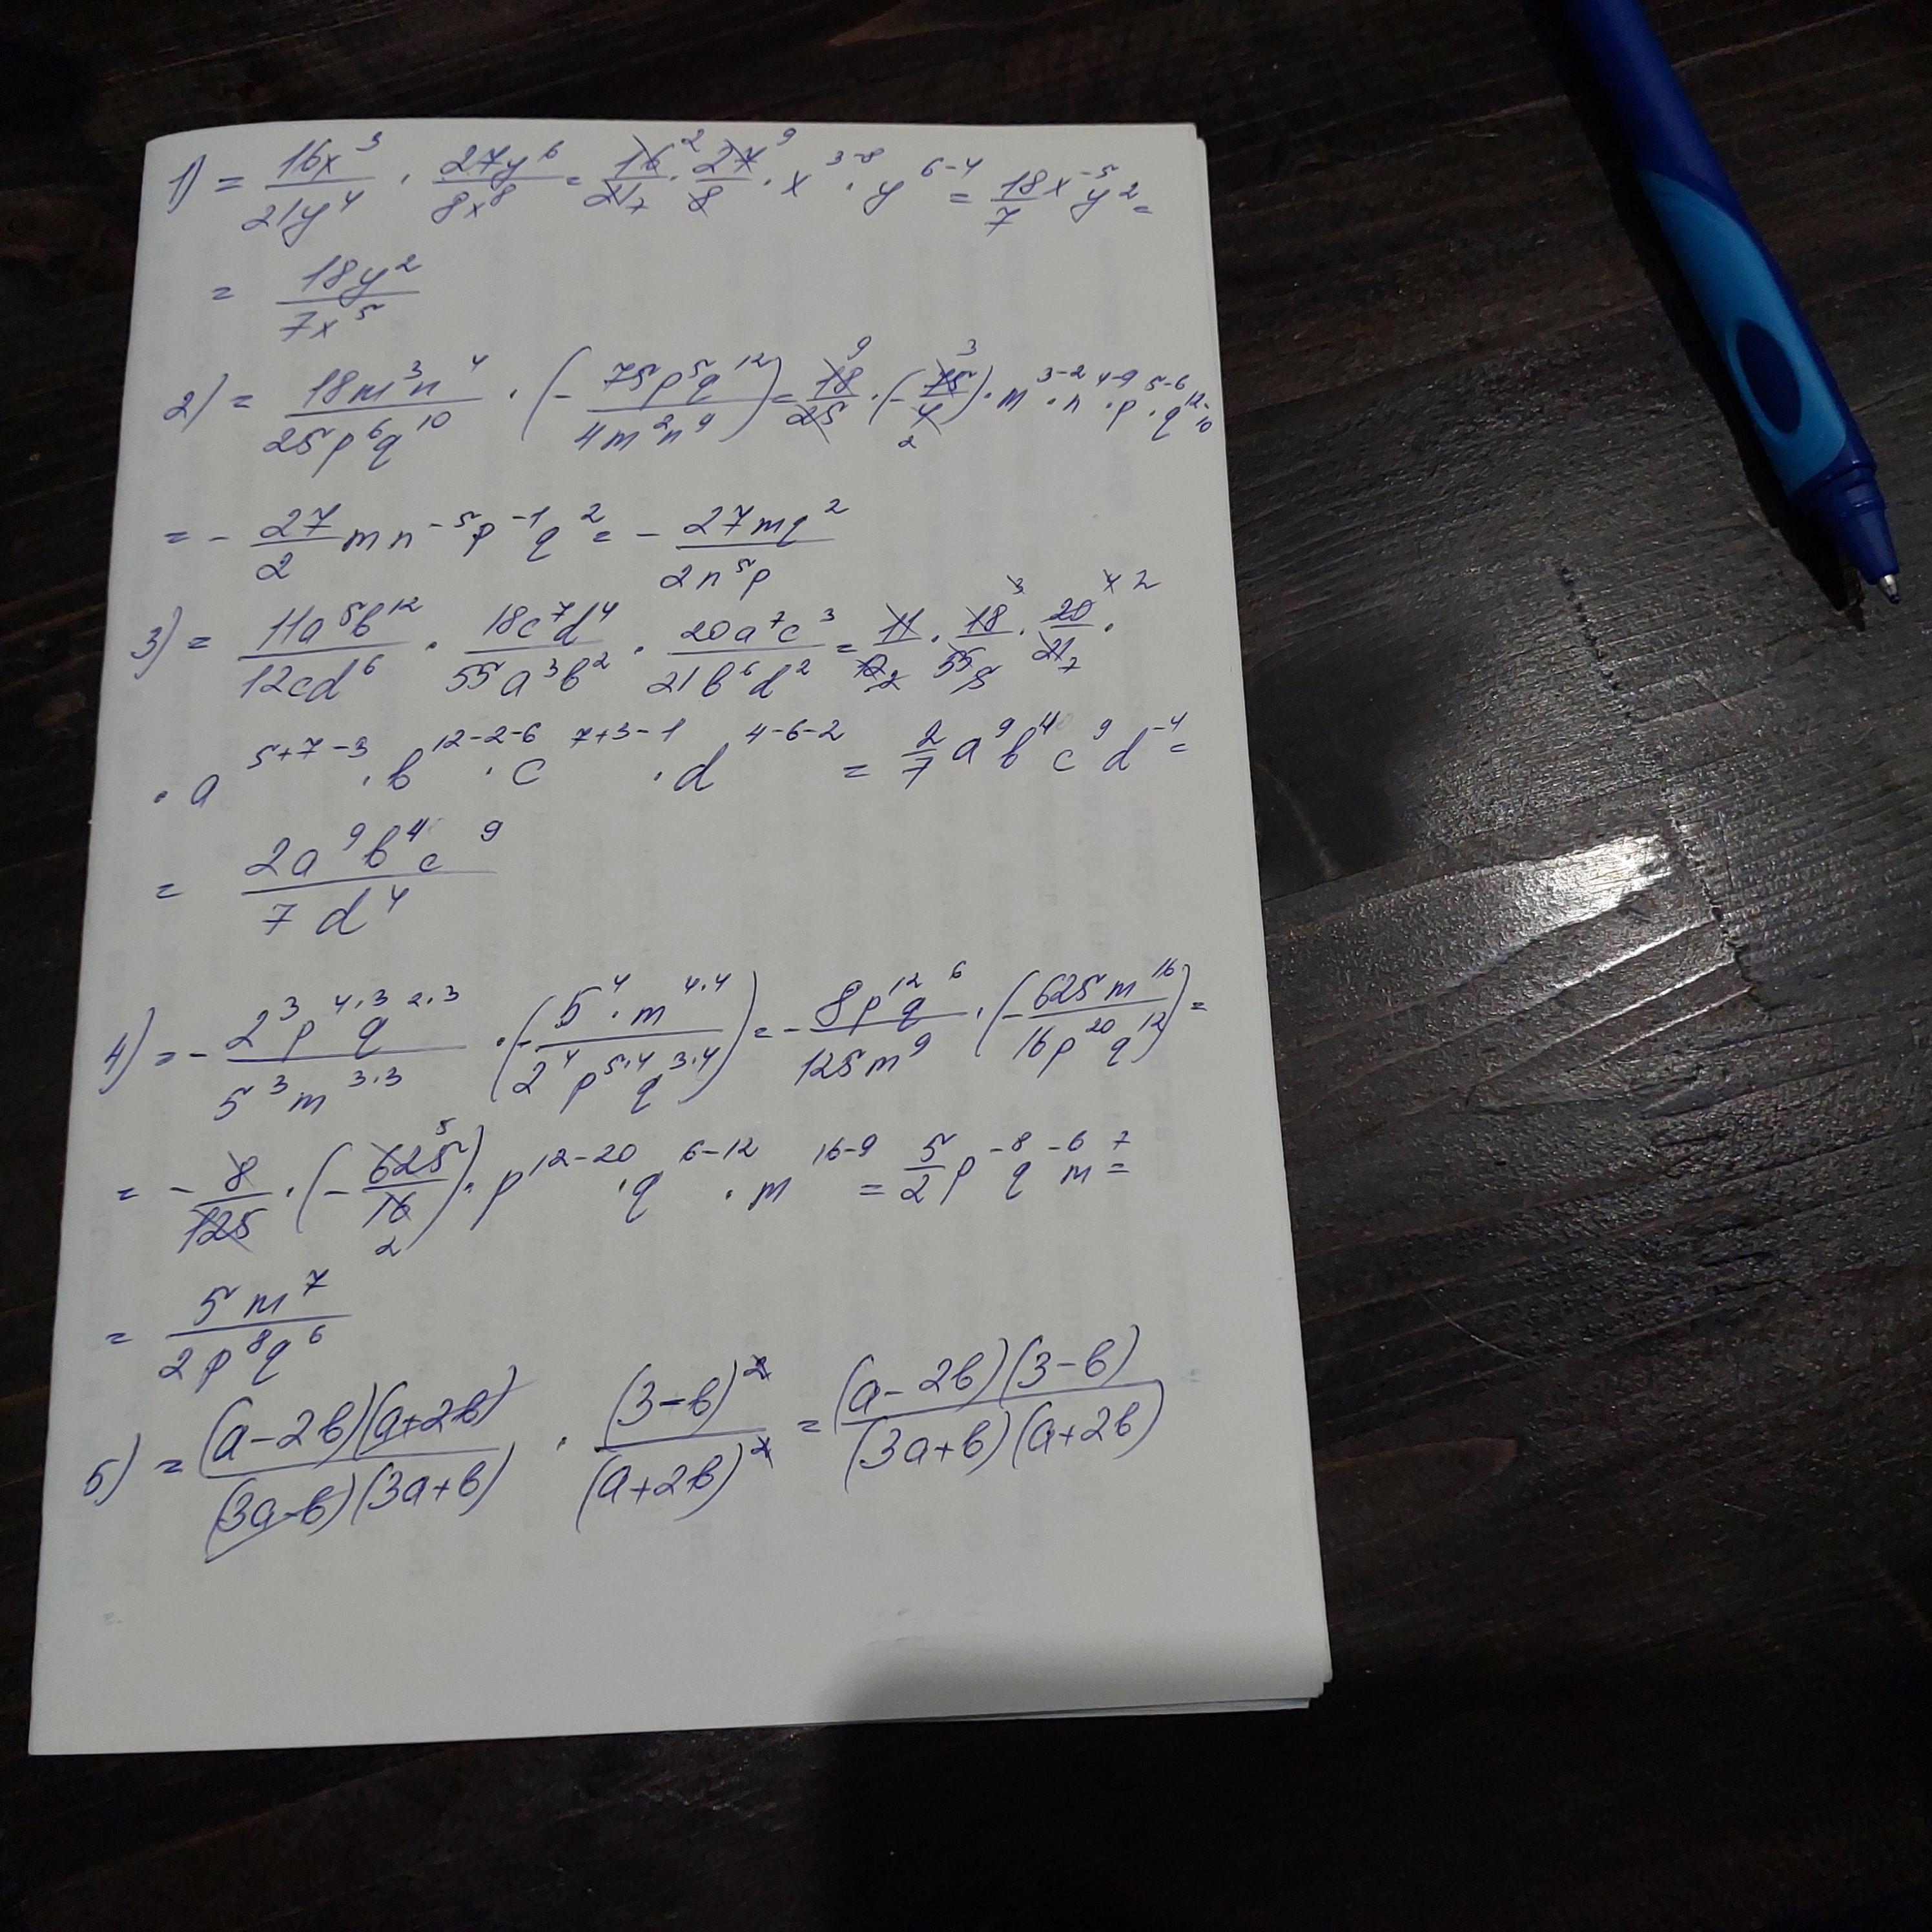 1) = 16x³/21y⁴ · 27y⁶/8x⁸ = 16²/21₇ · 27⁹/8 · x³⁻⁸ · y⁶⁻⁴ = 18/7 x⁻⁵y² =
= 18y²/7x⁵
2) = 18m³n⁴/25p⁶q¹⁰ · (- 75p⁵q¹²/4m²n⁹) = 18⁹/25 · (- 75³/4₂) · m³⁻² · n⁴⁻⁹ · p⁵⁻⁶ · q¹²⁻¹⁰
= - 27/2 mn⁻⁵p⁻¹q² = - 27mq²/2n⁵p
3) = 11a⁵b¹²/12cd⁶ · 18c⁷d⁴/55a³b² · 20a⁷c³/21b⁶d² = 11/12₂ · 18³/55₅ · 20⁴ ²/21₇ ·
· a⁵⁺⁷⁻³ · b¹²⁻²⁻⁶ · c⁷⁺³⁻¹ · d⁴⁻⁶⁻² = 2/7 a⁹b⁴c⁹d⁻⁴ =
= 2a⁹b⁴c⁹/7d⁴
4) = - 2³p⁴·³q²·³/5³m³·³ · (- 5⁴·m⁴·⁴/2⁴p⁵·⁴q³·⁴) = - 8p¹²q⁶/125m⁹ · (- 625m¹⁶/16p²⁰q¹²) =
= - 8/125 · (- 625⁵/16₂) · p¹²⁻²⁰ · q⁶⁻¹² · m¹⁶⁻⁹ = 5/2 p⁻⁸q⁻⁶m⁷ =
= 5m⁷/2p⁸q⁶
5) = (a-2b)(a+2b)/(3a-b)(3a+b) · (3-b)²/(a+2b)² = (a-2b)(3-b)/(3a+b)(a+2b)